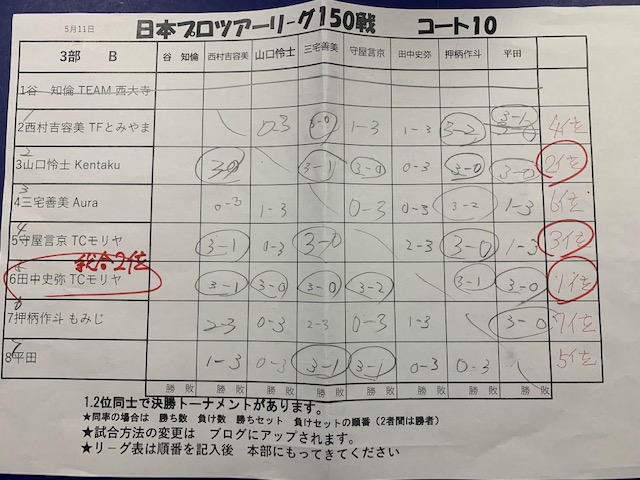 5月11日 日本プロツアーリーグ150戦 コート10
3部 B 谷 知倫 西村吉容美 山口怜士 三宅善美 守屋言京 田中史弥 押柄作斗 平田
1谷 知倫 TEAM 西大寺
1
2西村吉容美 TFとみやま 0-3 3-0 1-3 1-3 3-2 3-1 4位
2
3山口怜士 Kentaku 3-0 3-1 3-0 0-3 3-0 3-0 2位
3
4三宅善美 Aura 0-3 1-3 0-3 0-3 3-2 1-3 6位
4
5守屋言京 TCモリヤ 3-1 0-3 3-0 2-3 3-0 1-3 3位
総合2位
5
6田中史弥 TCモリヤ 3-1 3-0 3-0 3-2 3-1 3-0 1位
6
7押柄作斗 もみじ 2-3 0-3 2-3 0-3 1-3 3-0 7位
7
8平田 1-3 0-3 3-1 3-1 0-3 0-3 5位
勝 敗 勝 敗 勝 敗 勝 敗 勝 敗 勝 敗 勝 敗 勝 敗
1.2位同士で決勝トーナメントがあります。
★同率の場合は 勝ち数 負け数 勝ちセット 負けセットの順番(2者間は勝者)
★試合方法の変更は ブログにアップされます。
★リーグ表は順番を記入後 本部にもってきてください